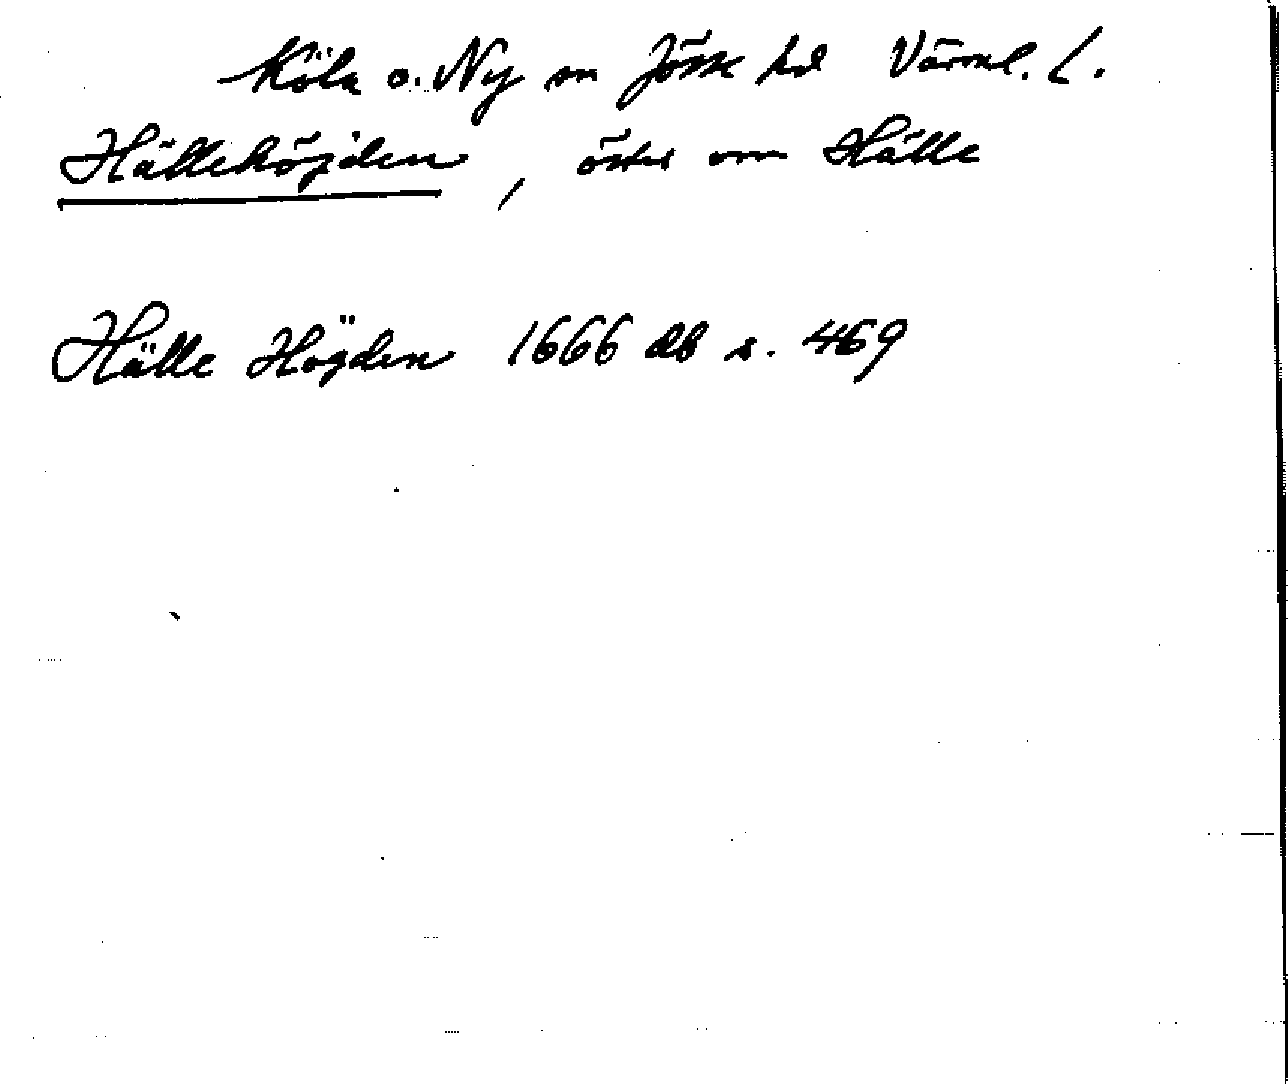 Köla o. Ny sn Jösse hd Värml. l.
Hällehöjden, öster om Hälle
Hälle Högden 1666 db s. 469